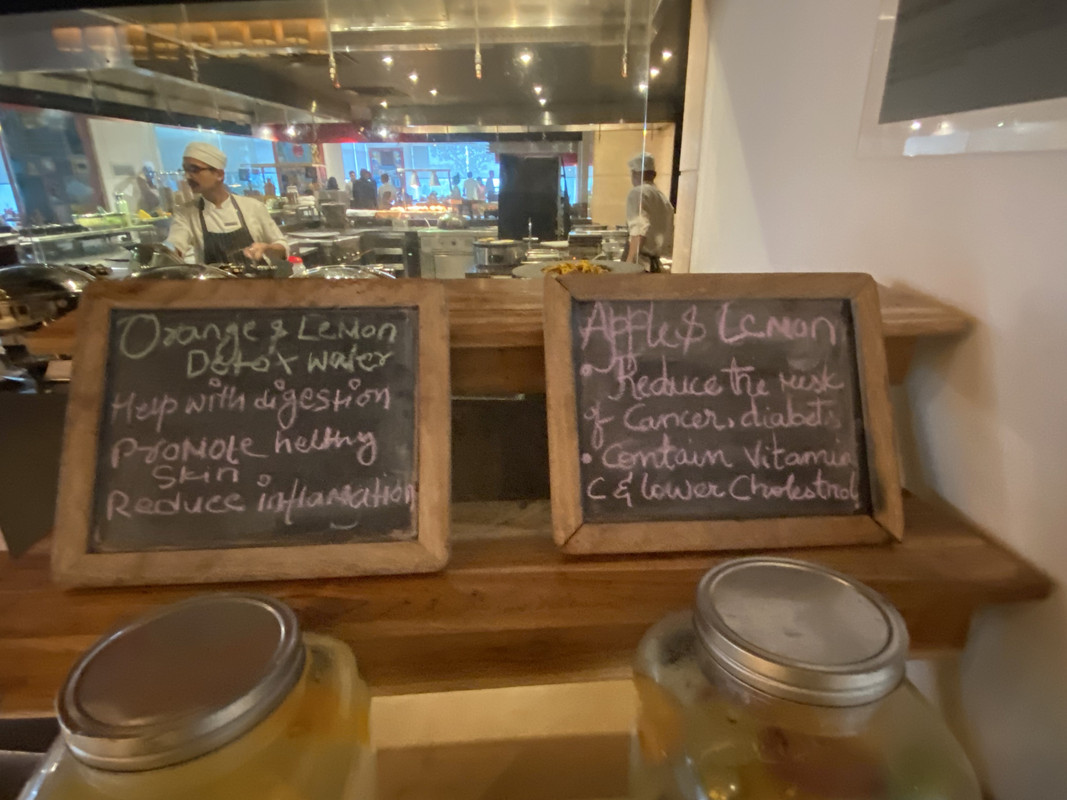 Orange & Lemon
Detox water
Help with digestion
Promote helthy
Skin
Reduce inflamation
Apple & Lemon
• Reduce the risk
of Cancer, diabets
• Contain vitamin
C & lower Cholestrol